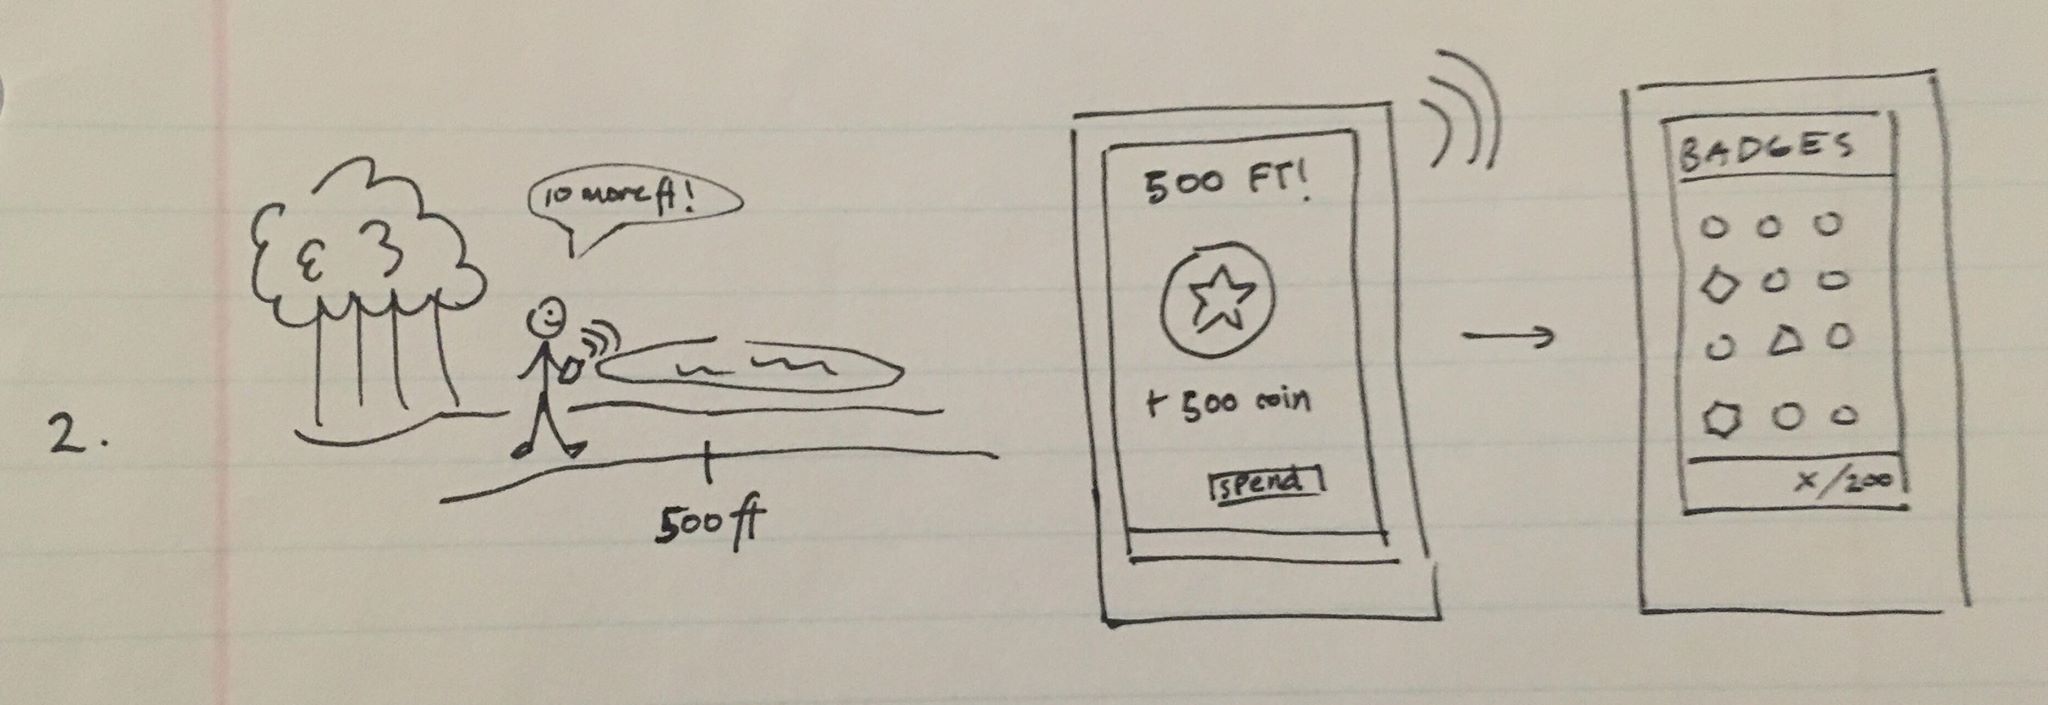 2.
10 more ft!
500 ft
500 FT!
+ 500 coin
spend
BADGES
x/200